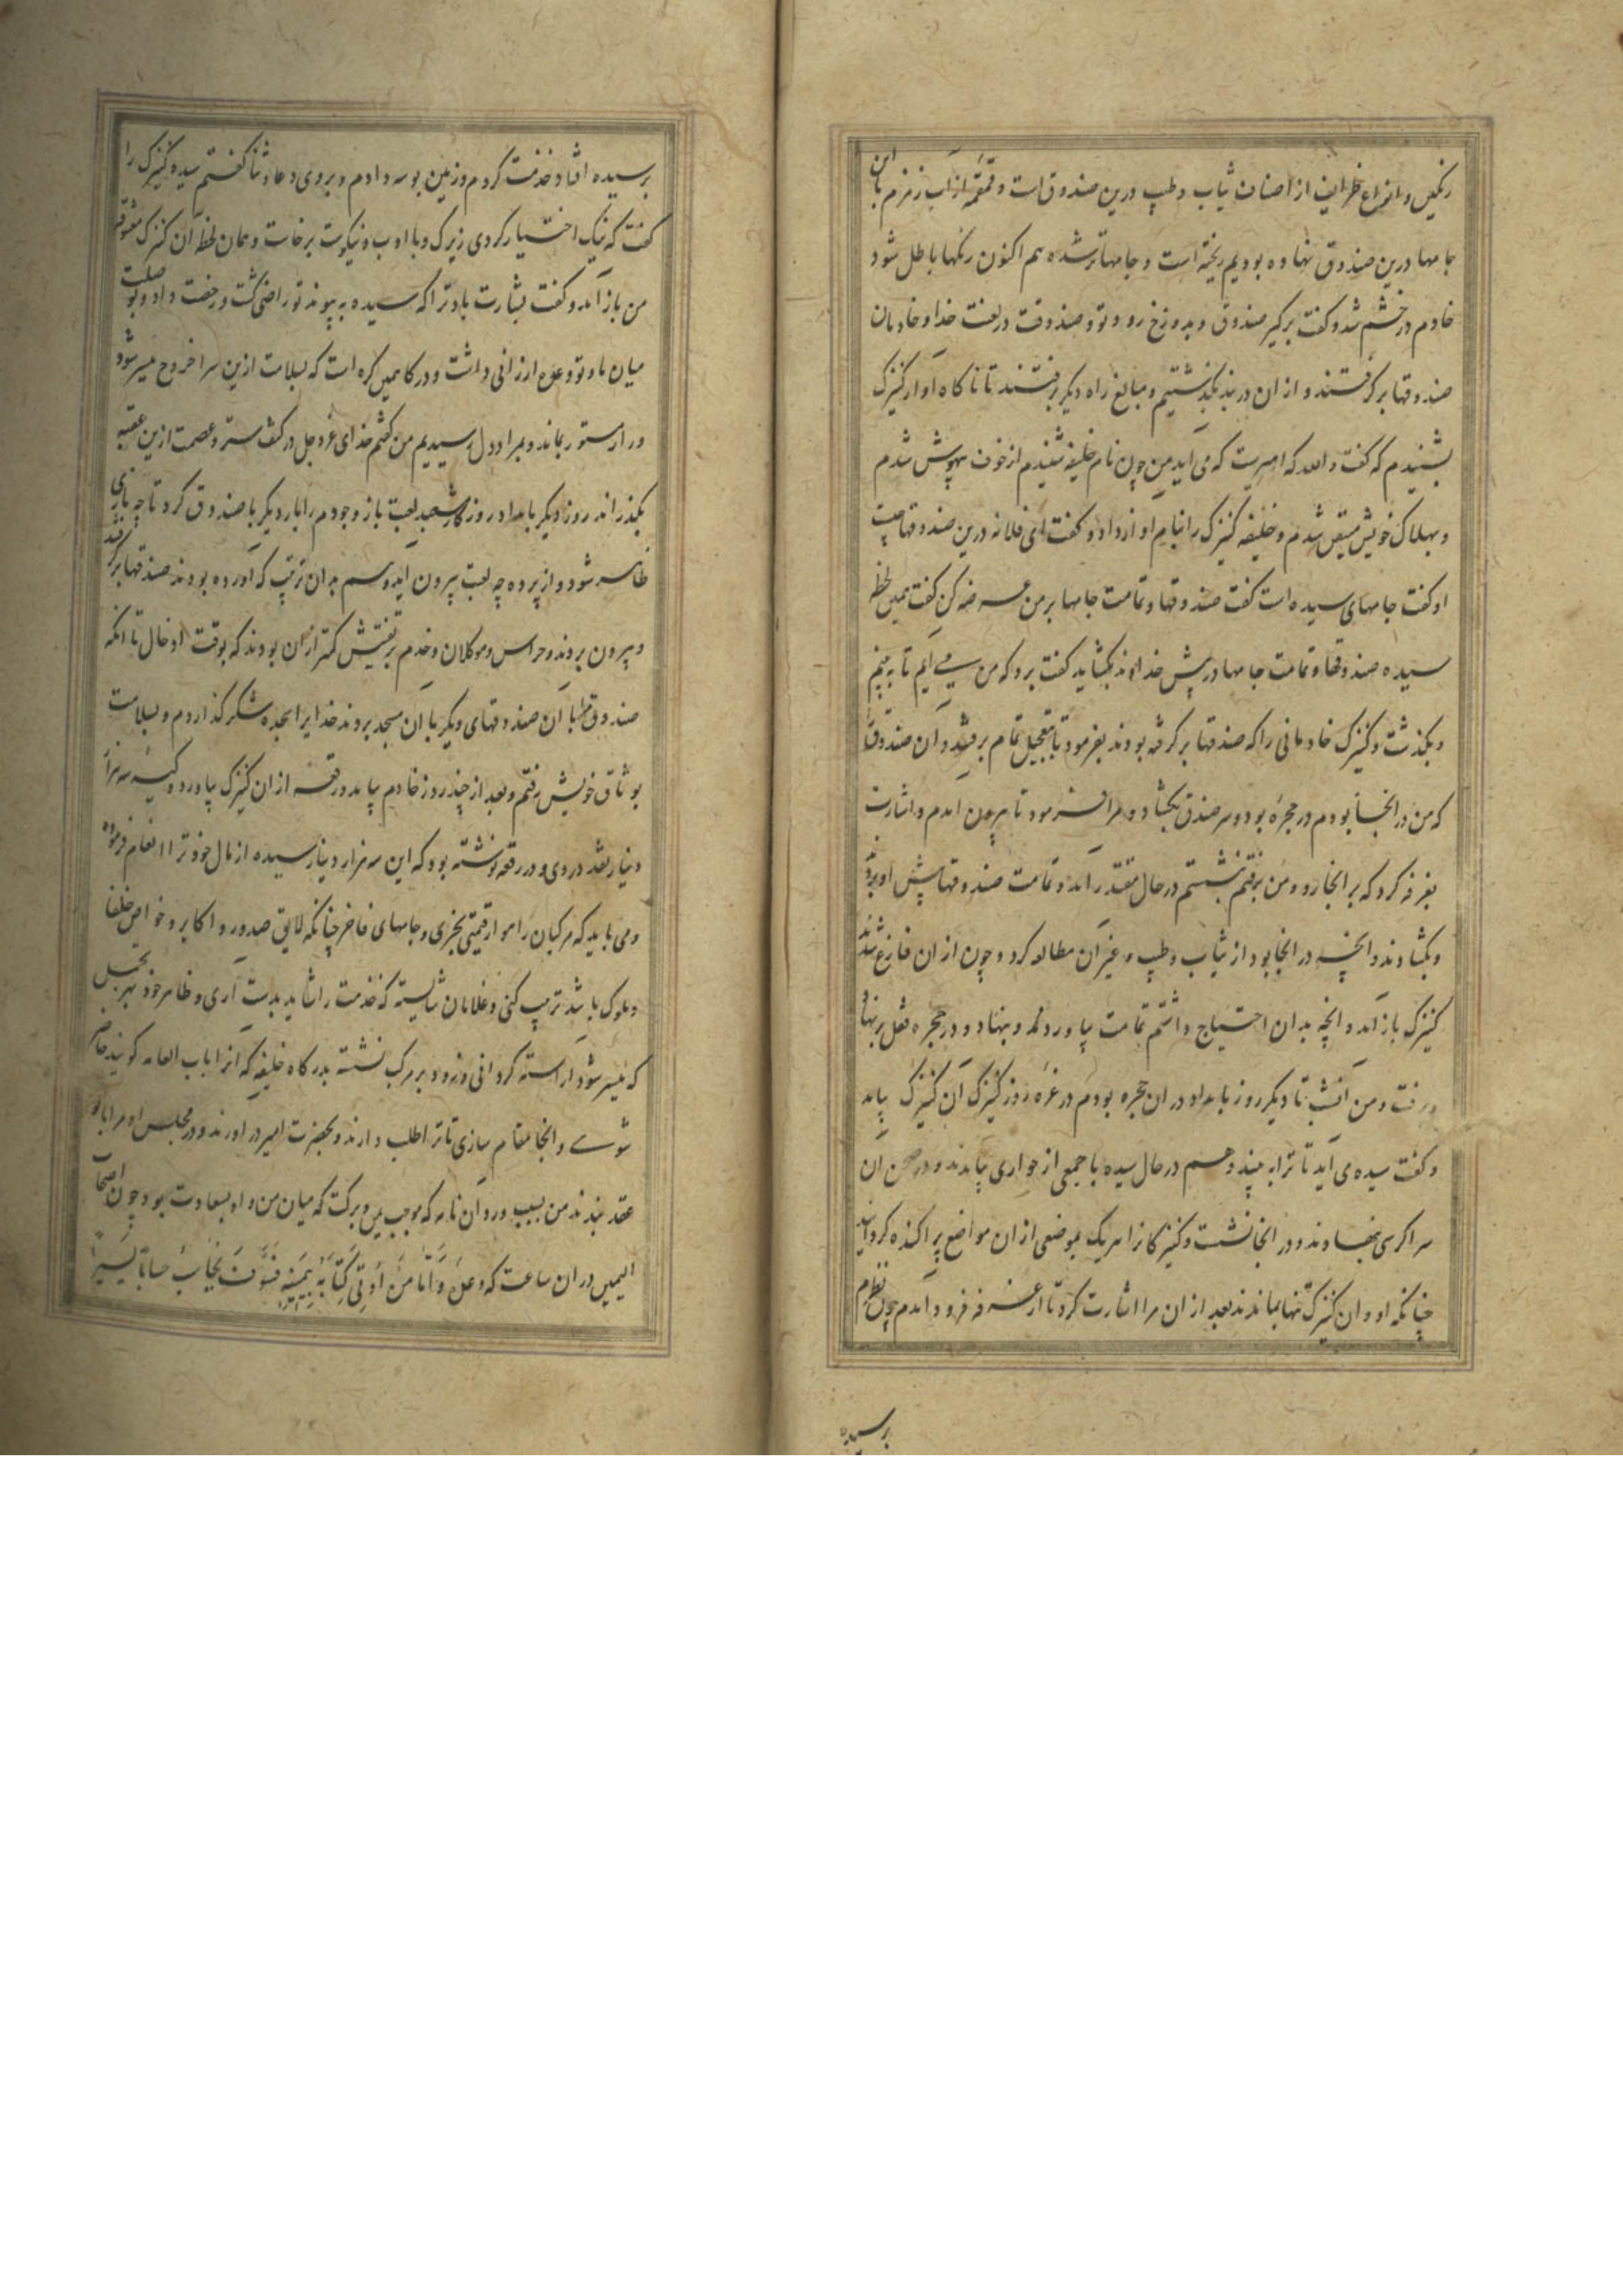 رنگین و انواع ظرایف از اصناف ثیاب و طیب درین صندوق است و قمقمه از آب زمزم با این
جامها درین صندوق نهاده بودیم ریخته است و جامها تر شده هم اکنون رنگها باطل شود
خادم در خشم شد و گفت برگیر صندوق و بدوزخ رو و تو و صندوقت در لعنت خدا و خادمان
صندوقها برگرفتند و از ان دربند بگذشتیم و مبالغ راه دیگر برفتند تا ناگاه اواز کنیزک
بشنیدم که گفت والله که امیرست که می آید من چون نام خلیفه شنیدم از خوف بیهوش شدم
و بهلاک خویش متیقن شدم و خلیفه کنیزک را بنام او ازداد و گفت ای فلانه درین صندوقها چیست
او گفت جامهای سیده است گفت صندوقها و تمامت جامها بر من عرضه کن گفت همین لحظه
سیده صندوقها و تمامت جامها در پیش خداوند بگشاید گفت برو که من می ایم تا به بینم
و بگذشت و کنیزک خادمانی را که صندقها برگرفته بودند بفرمود تا بتعجیل تمام برفتند و ان صندوق
که من در انجا بودم در حجره بود و سر صندق بگشاد و مرا فرمود تا بیرون امدم و اشارت
بغرفه کرد که بر انجا رو و من برفتم بنشستم در حال مقتدر آمد و تمامت صندوقها پیش او بردند
و بگشادند و آنچه در انجا بود از ثیاب و طیب و غیر آن مطالعه کرد و چون از ان فارغ شدند
کنیزک باز آمد و انچه بدان احتیاج داشتم تمامت بیاورد و بنهاد و در حجره قفل بر نهاد
و رفت و من آنشب تا دیگر روز بامداد در ان حجره بودم در غره روز کنیزک آن کنیزک بیامد
و گفت سیده می آید تا ترا به بیند و هم در حال سیده با جمعی از جواری بیامدند و در صحن آن
سرا کرسی نهادند و در انجا نشست و کنیزکان را هر یک بموضعی از ان مواضع پراکنده گردانید
چنانکه او و ان کنیزک تنها بماندند بعد از ان مرا اشارت کرد تا از غرفه فرود آمدم چون نظرم
بر سیده
بر سیده افتاد خدمت کردم و زمین بوسه دادم و بر وی دعا و ثنا گفتم سیده کنیزک را
گفت که نیک اختیار کردی زیرک و با ادب و نیکوست برخاست و همان لحظه آن کنیزک معشوقه
من باز آمد و گفت بشارت باد ترا که سیده به پیوند تو راضی گشت و رخصت داد و بوصلت
میان ما و تو وعده ارزانی داشت و در کار همین گره است که بسلامت ازین سرا خروج میسر شود
و راز مستور بماند و بمراد دل رسیدیم من گفتم خدای عزوجل در کنف ستر و عصمت ازین عقبه
بگذراند روز دیگر بامداد روزگار شعبده لعبت باز وجودم را بار دیگر با صندوق کرد تا چه بازی
ظاهر شود و از پرده چه لعبت بیرون آید و هم بدان ترتیب که آورده بودند صندقها برگرفتند
و بیرون بردند و حراس و موکلان و خدم بر تفتیش کمتر ازان بودند که بوقت ادخال تا انکه
صندوق مرا با آن صندوقهای دیگر با آن مسجد بردند خدایرا سجده شکر گذاردم و بسلامت
بوثاق خویش رفتم و بعد از چند روز خادم بیامد و رقعه از ان کنیزک بیاورد و کیسه سه هزار
دینار نقد در وی و در رقعه نوشته بود که این سه هزار دینار سیده از مال خود ترا انعام فرموده
و می باید که مرکبان راهوار قیمتی بخری و جامهای فاخر چنانکه لایق صدور و اکابر و خواص خلفا
و ملوک باشد ترتیب کنی و غلامان شایسته که خدمت را شاید بدست آری و ظاهر خود بهر تجمل
که میسر شود آراسته گردانی و زود بر مرکب نشسته بدرگاه خلیفه که آنرا باب العامه گویند حاضر
شوی و انجا مقام سازی تا ترا طلب دارند و بحضرت امیر در اورند و در مجلس او مرا با تو
عقد بندند من بسبب ورود ان نامه که موجب یمن و برکت که میان من و او بسعادت بود چون اصحاب
الیمین در ان ساعت که وعده وَاَمّا مَن اُوتِیَ کِتابَهُ بِیَمینِه فَسَوفَ یُحاسَبُ حسابًا یَسیرًا